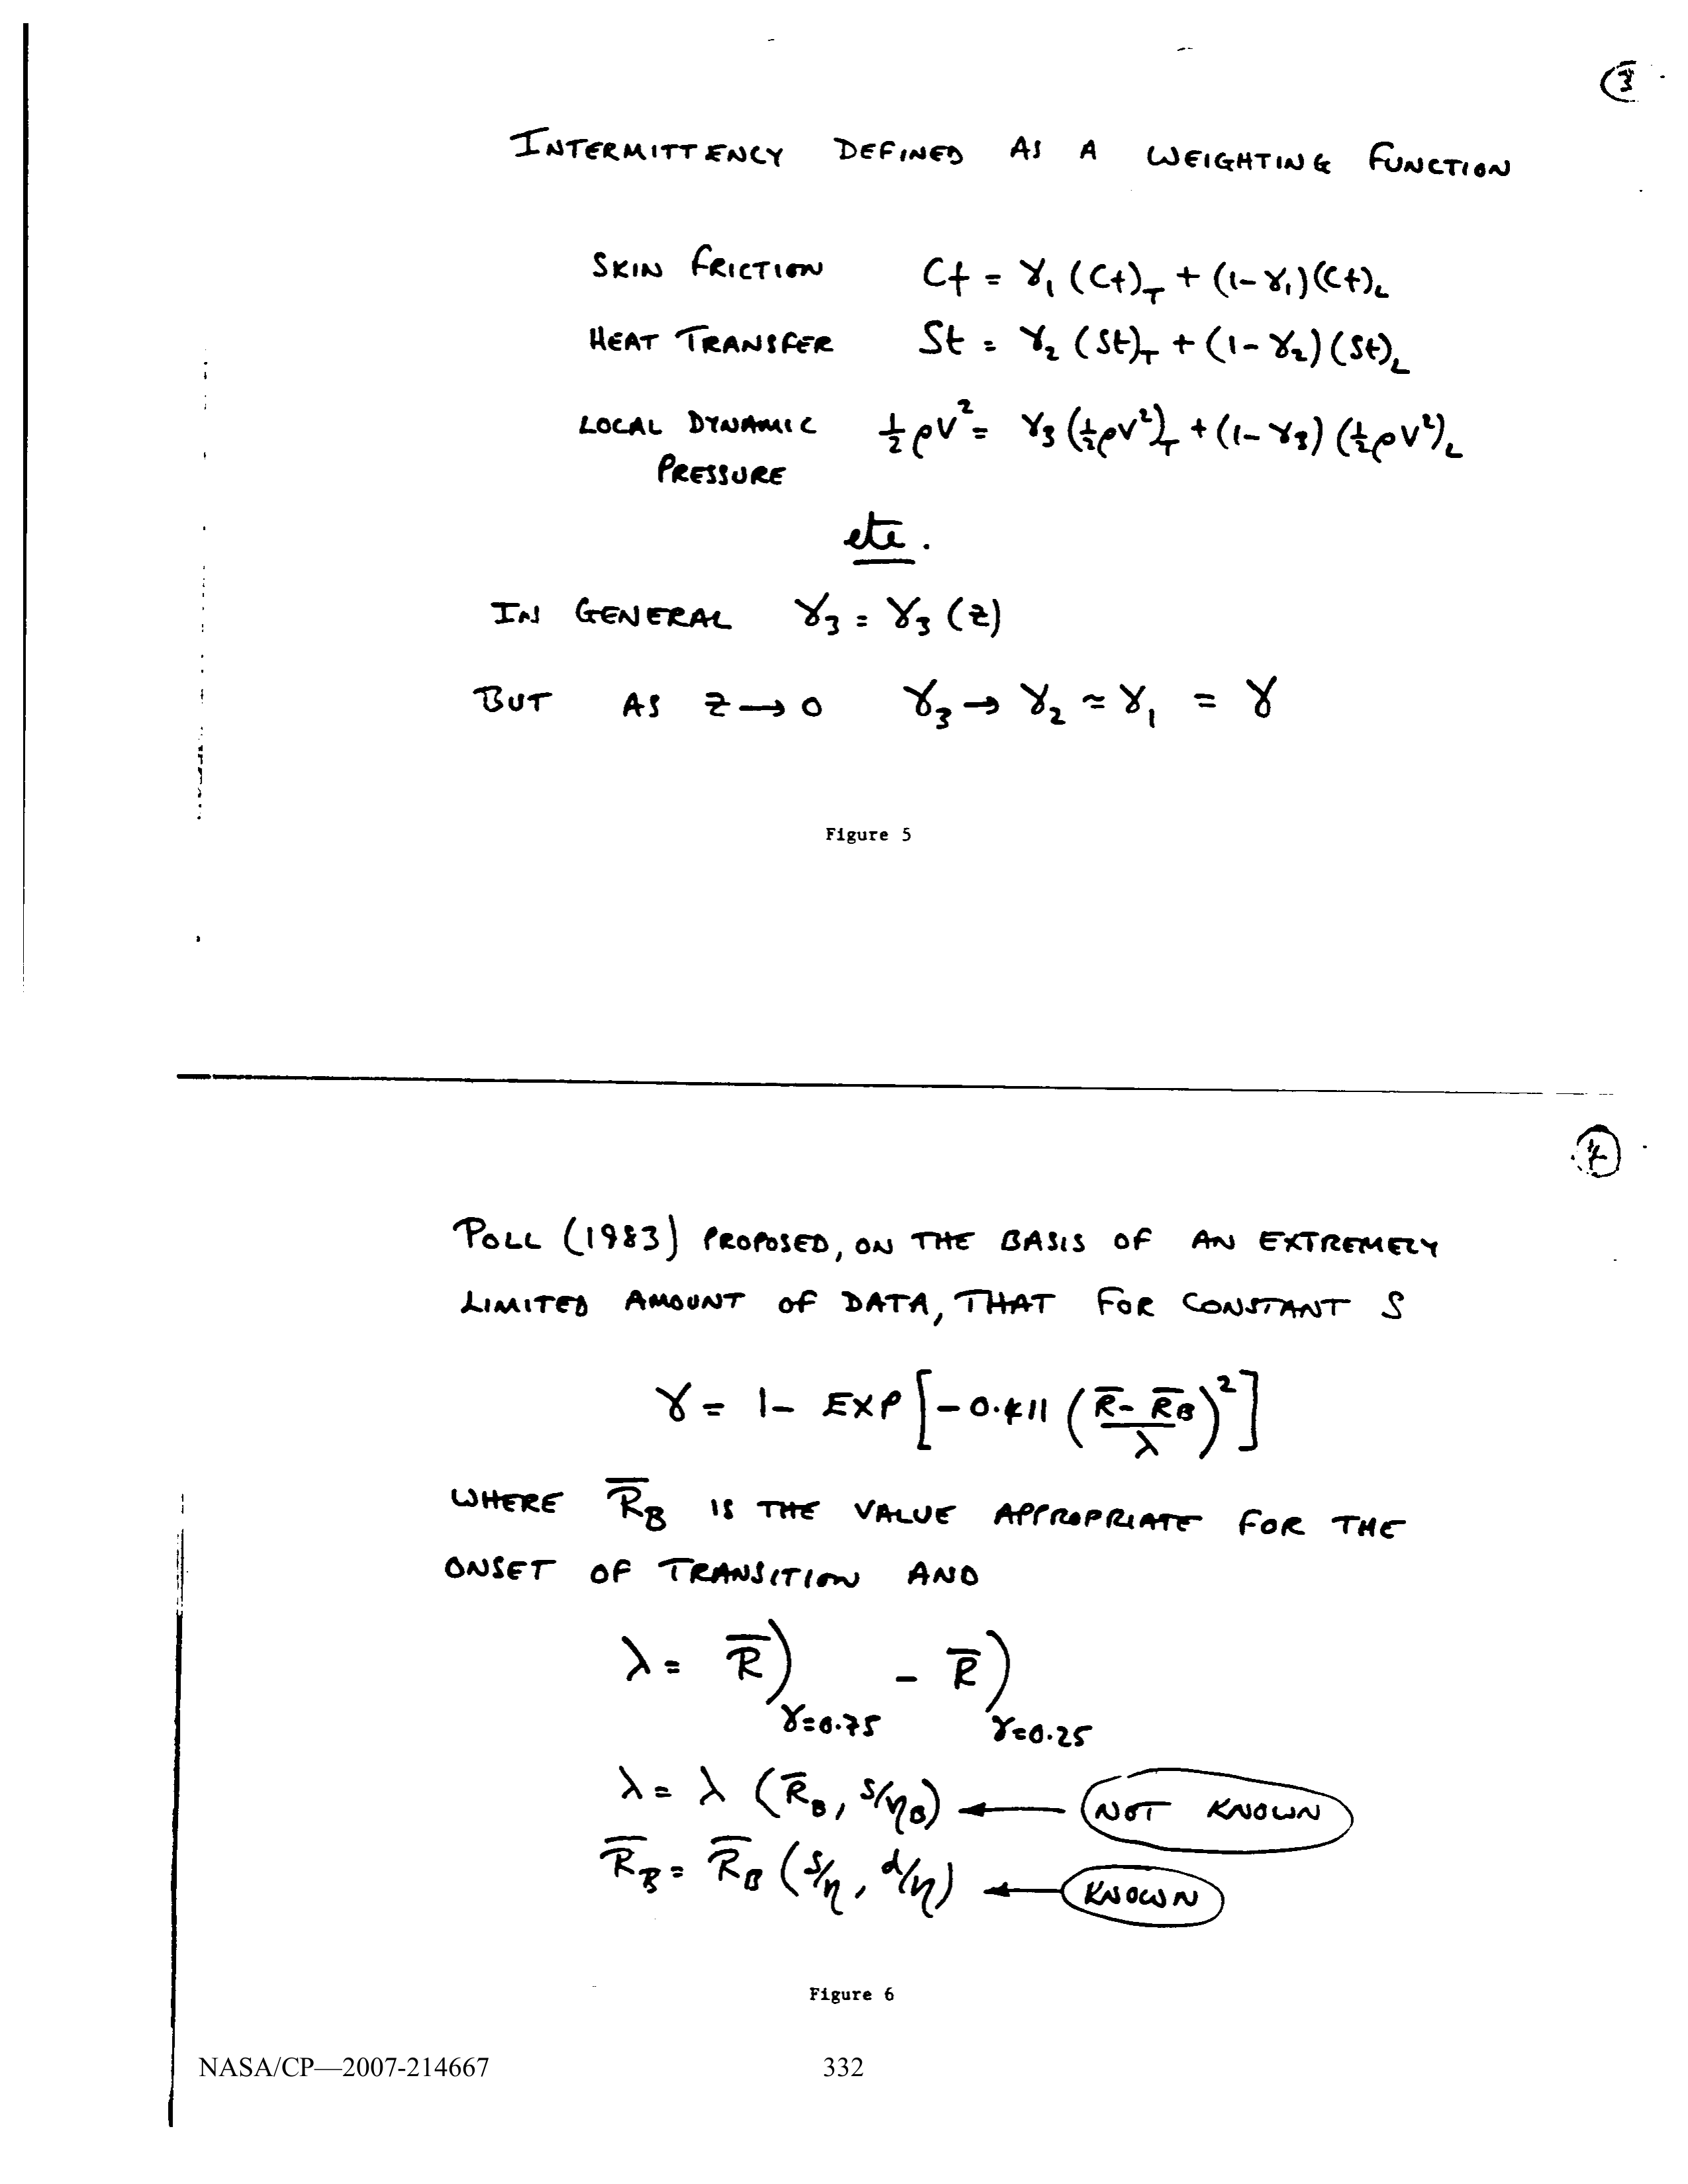 3
INTERMITTENCY DEFINED AS A WEIGHTING FUNCTION
SKIN FRICTION Cf = γ₁ (Cf)_T + (1-γ₁)(Cf)_L
HEAT TRANSFER St = γ₂ (St)_T + (1-γ₂)(St)_L
LOCAL DYNAMIC ½ρV² = γ₃(½ρV²)_T + (1-γ₃)(½ρV²)_L
PRESSURE
etc.
IN GENERAL γ₃ = γ₃(z)
BUT AS z → 0 γ₃ → γ₂ ≈ γ₁ = γ
Figure 5
POLL (1983) PROPOSED, ON THE BASIS OF AN EXTREMELY
LIMITED AMOUNT OF DATA, THAT FOR CONSTANT S
γ = 1 - EXP[-0.411 ((R̄ - R̄_B)/λ)²]
WHERE R̄_B IS THE VALUE APPROPRIATE FOR THE
ONSET OF TRANSITION AND
λ = R̄)_γ=0.75 - R̄)_γ=0.25
λ = λ (R̄_B, S/η_B) ← NOT KNOWN
R̄_B = R̄_B (S/η, d/η) ← KNOWN
Figure 6
NASA/CP—2007-214667 332